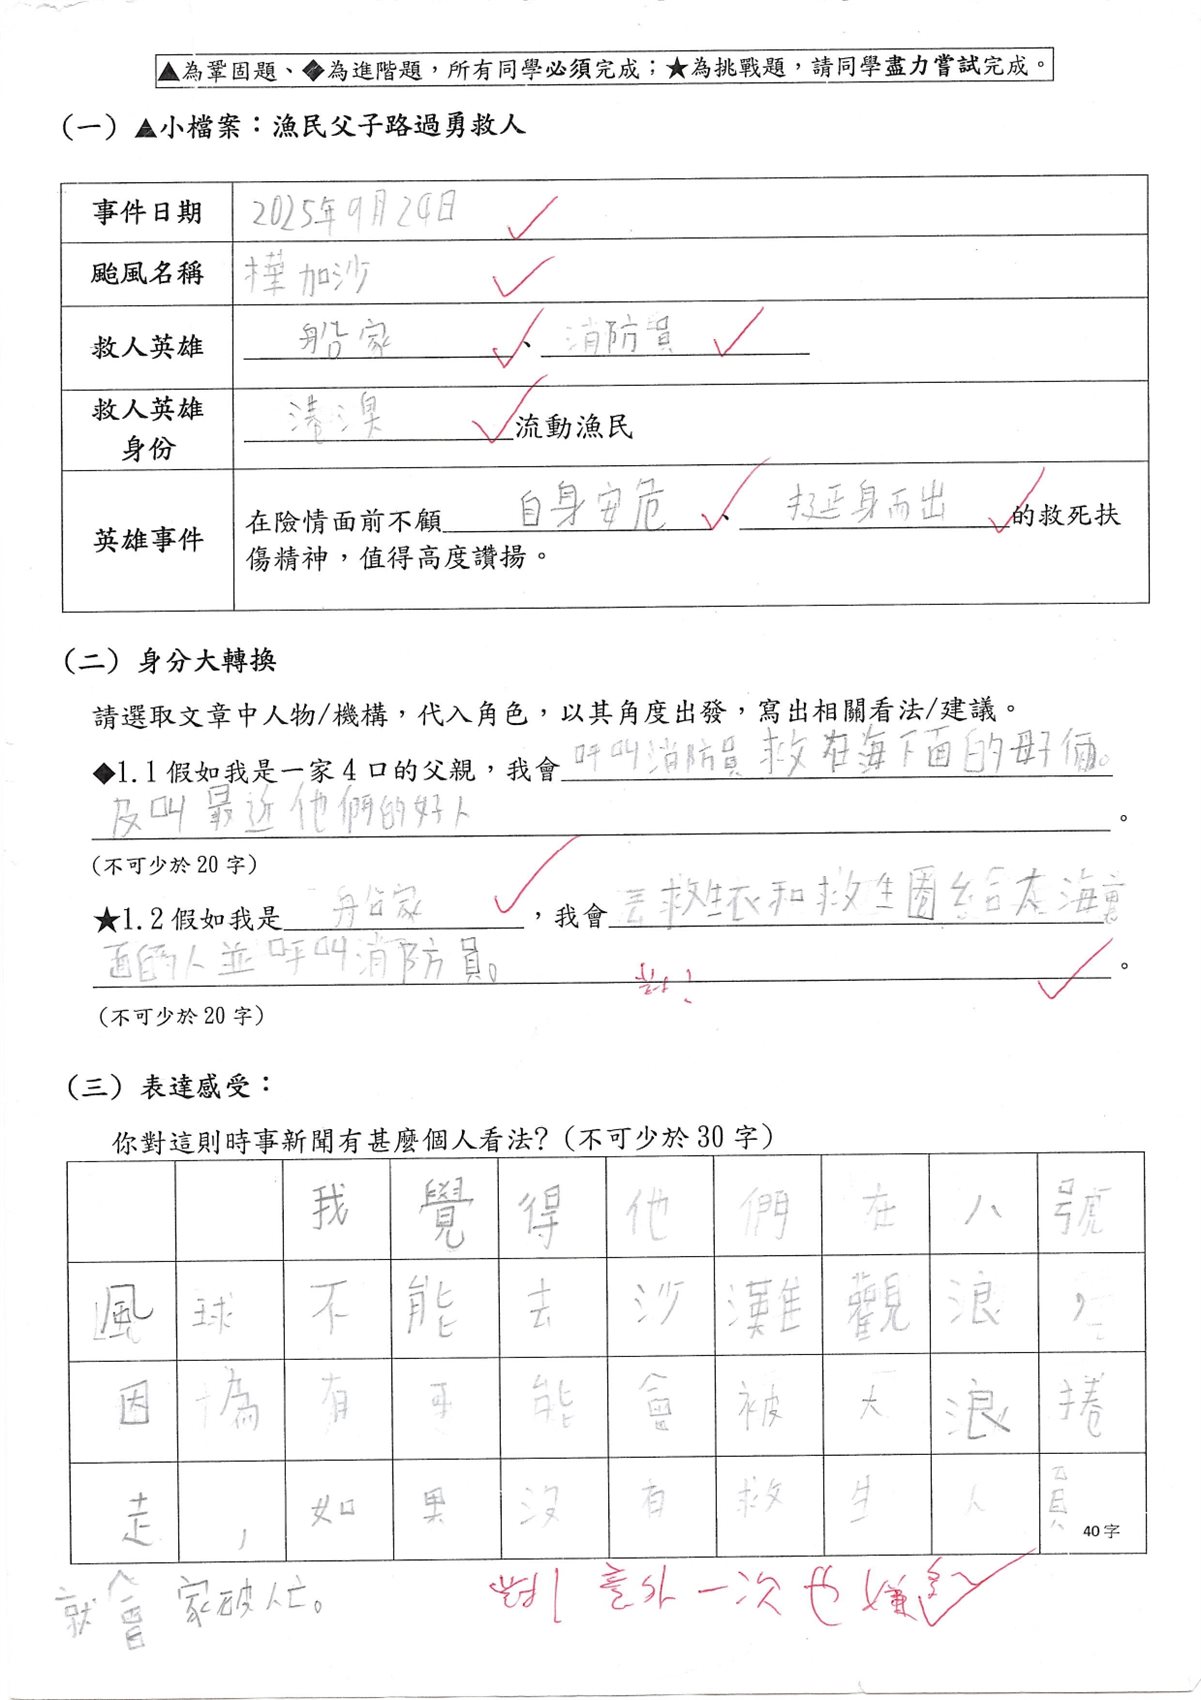 ▲為鞏固題、◆為進階題，所有同學必須完成；★為挑戰題，請同學盡力嘗試完成。
（一）▲小檔案：漁民父子路過勇救人
事件日期 2025年9月24日
颱風名稱 樺加沙
救人英雄 船家、消防員
救人英雄身份 港澳流動漁民
英雄事件 在險情面前不顧自身安危、挺身而出的救死扶
傷精神，值得高度讚揚。
（二）身分大轉換
請選取文章中人物/機構，代入角色，以其角度出發，寫出相關看法/建議。
◆1.1 假如我是一家 4 口的父親，我會呼叫消防員救在海下面的母子倆。
及叫最近他們的好人。
（不可少於 20 字）
★1.2 假如我是船家，我會丟救生衣和救生圈給在海裏
面的人並呼叫消防員。。
（不可少於 20 字）
（三）表達感受：
你對這則時事新聞有甚麼個人看法?（不可少於 30 字）
我覺得他們在八號
風球不能去沙灘觀浪，
因為有可能會被大浪捲
走，如果沒有救生人員
40 字
就會家破人亡。
對！意外一次也嫌多